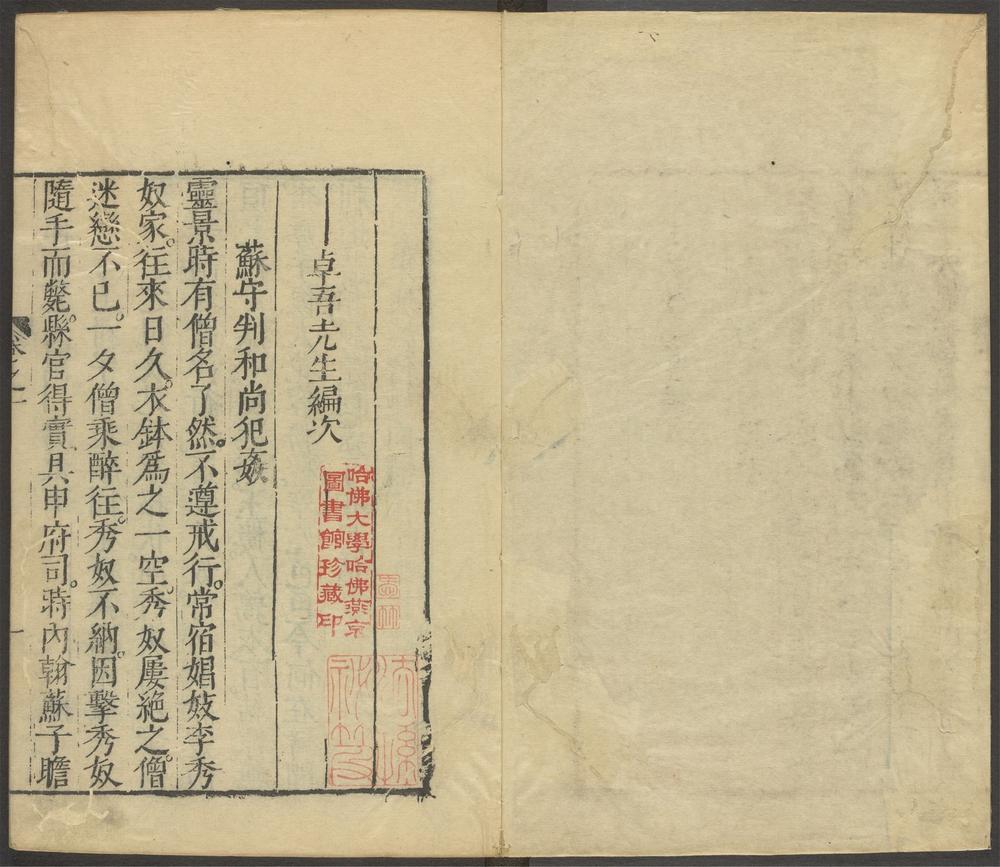 卓吾先生編次
蘇守判和尚犯姦
靈景時有僧名了然。不遵戒行。常宿娼妓李秀
奴家。往來日久。衣鉢爲之一空。秀奴屢絶之。僧
迷戀不已。一夕僧乘醉往。秀奴不納。因擊秀奴
隨手而斃。縣官得實。具申府司。時內翰蘇子瞻
一
哈佛大學哈佛燕京
圖書館珍藏印